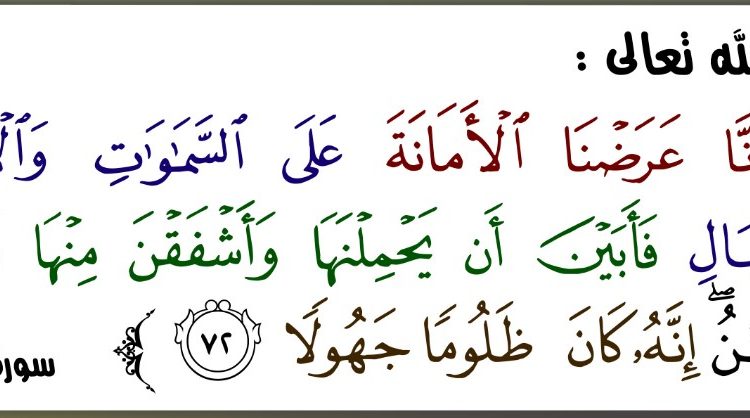 الله تعالى :
نَّا عَرَضْنَا ٱلْأَمَانَةَ عَلَى ٱلسَّمَٰوَٰتِ وَٱلْأ
بَالِ فَأَبَيْنَ أَن يَحْمِلْنَهَا وَأَشْفَقْنَ مِنْهَا
نُ ۖ إِنَّهُۥ كَانَ ظَلُومًا جَهُولًا ٧٢ ﴾ سورة